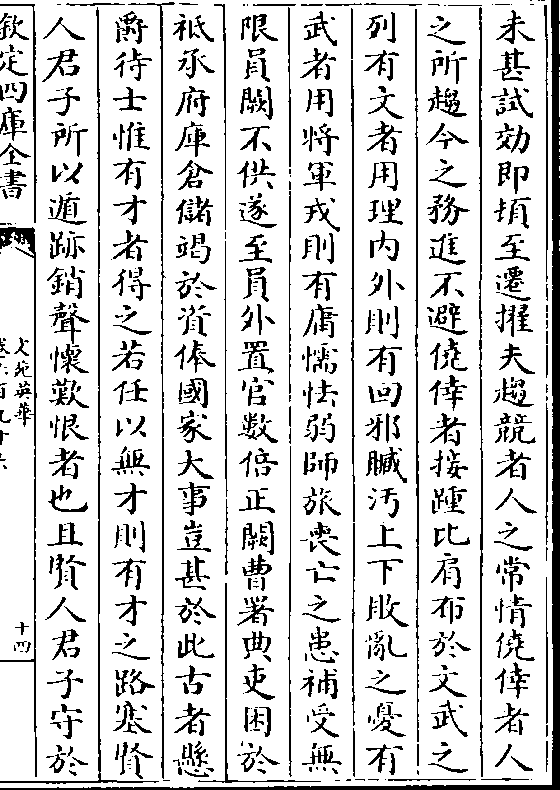 未甚試効即頃至遷擢夫趨競者人之常情僥倖者人
之所趨今之務進不避僥倖者接踵比肩布於文武之
列有文者用理内外則有回邪贓汚上下敗亂之憂有
武者用將軍戎則有庸懦怯弱師旅喪亡之患補受無
限員闕不供遂至員外置官數倍正闕曹署典吏困於
祇承府庫倉儲竭於資俸國家大事豈甚於此古者懸
爵待士惟有才者得之若任以無才則有才之路塞賢
人君子所以遁跡銷聲懷歎恨者也且賢人君子守於
欽定四庫全書
文苑英華
十四